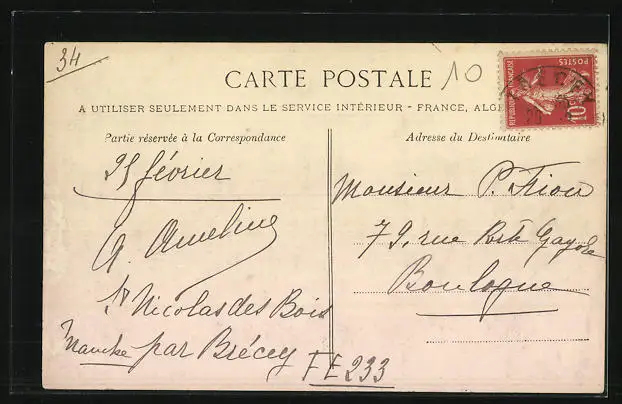 34
CARTE POSTALE
10
A UTILISER SEULEMENT DANS LE SERVICE INTÉRIEUR - FRANCE, ALG
REPUBLIQUE FRANÇAISE
POSTES
10
Partie réservée à la Correspondance
Adresse du Destinataire
25 février
A. Ameline
St Nicolas des Bois
Manche par Brécey
FE 233
Monsieur P. Frion
79, rue Porte Gayole
Boulogne